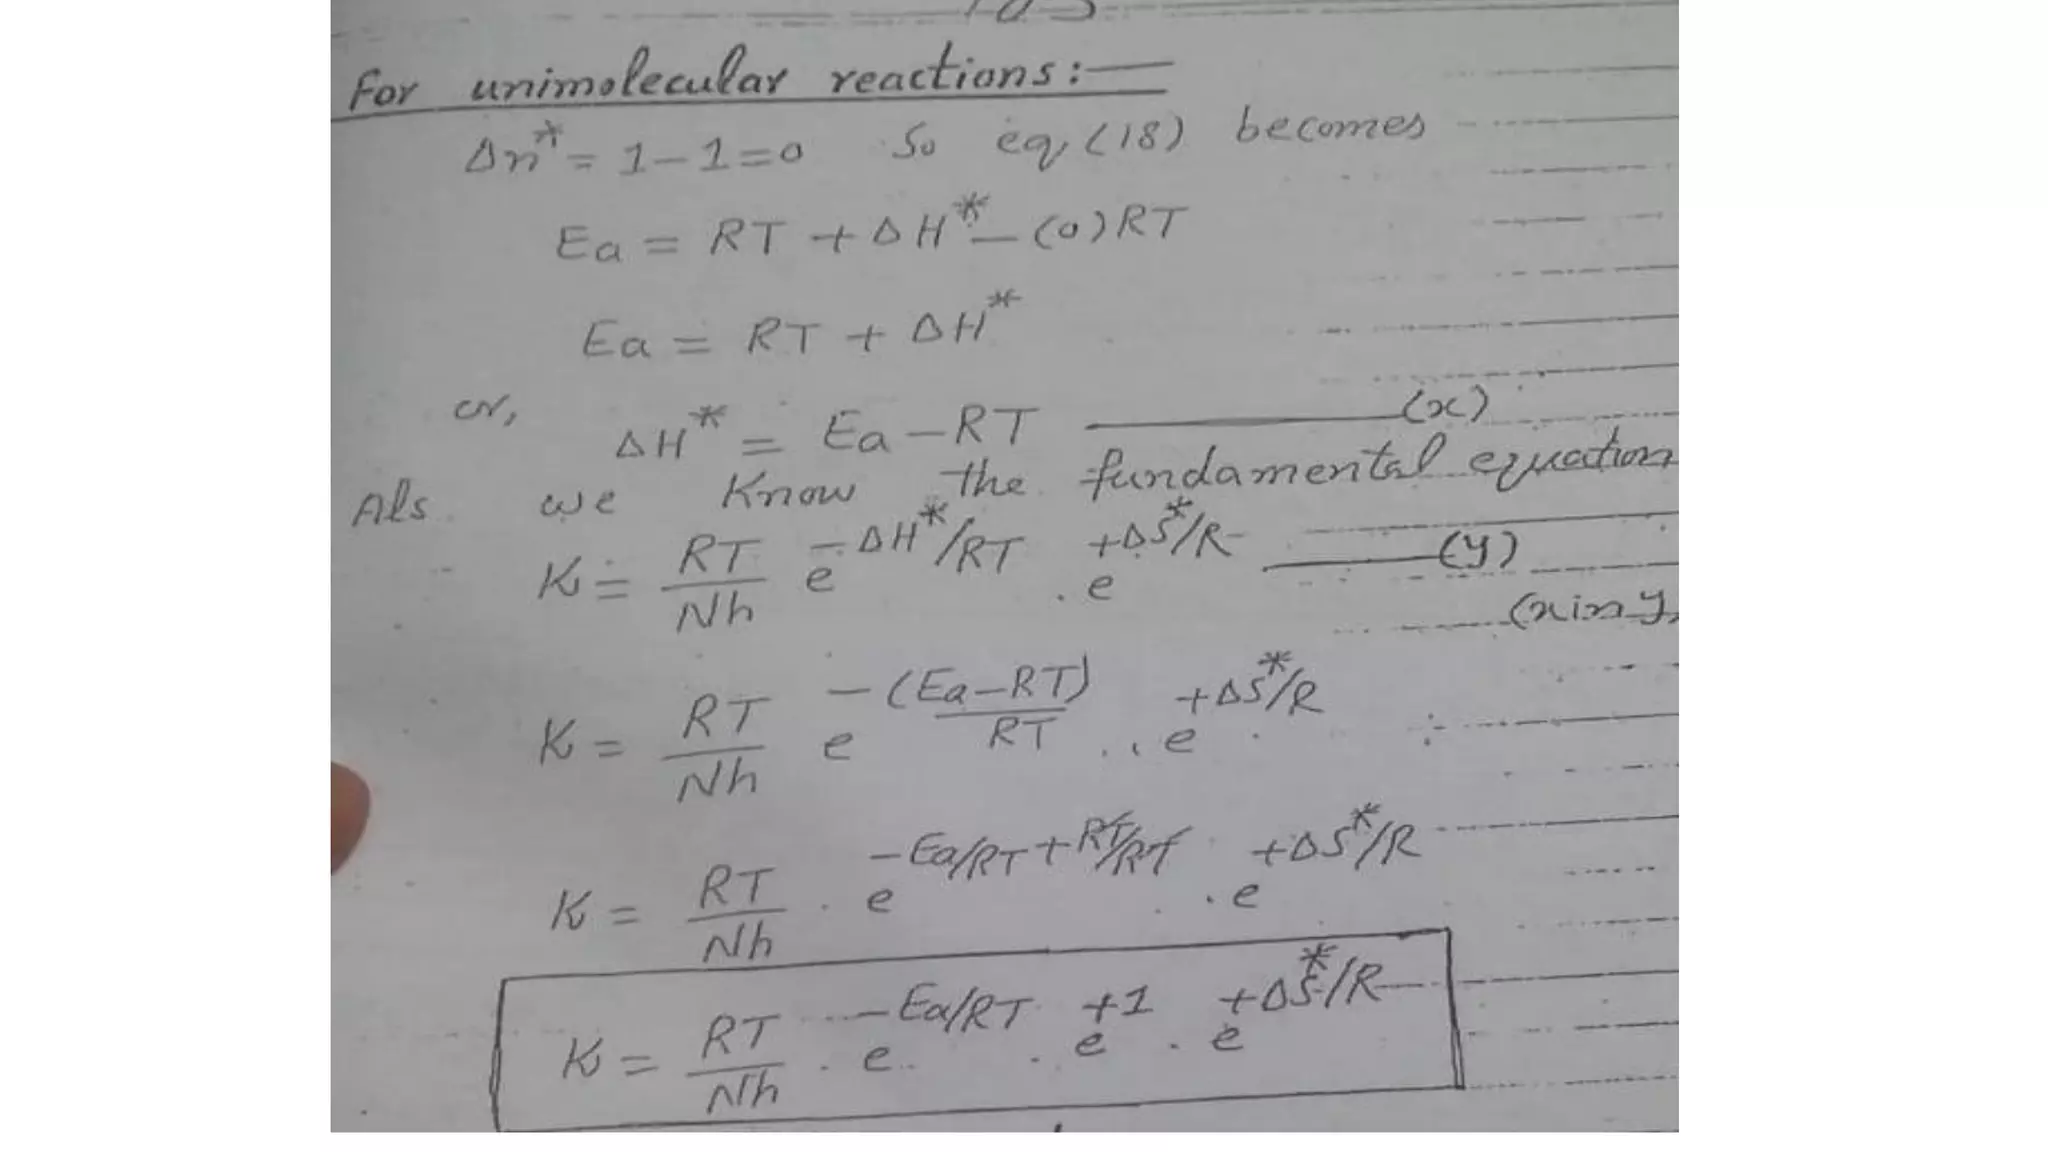 For unimolecular reactions:—
Δn* = 1-1=0 So eq (18) becomes
Ea = RT + ΔH* - (0)RT
Ea = RT + ΔH*
or,
ΔH* = Ea - RT ———(x)
Als we Know the fundamental equation
K = RT/Nh e^-ΔH*/RT . e^+ΔS*/R ———(y)
(x in y)
K = RT/Nh e^-(Ea-RT)/RT . e^+ΔS*/R
K = RT/Nh . e^-Ea/RT + RT/RT . e^+ΔS*/R
K = RT/Nh . e^-Ea/RT . e^+1 . e^+ΔS*/R